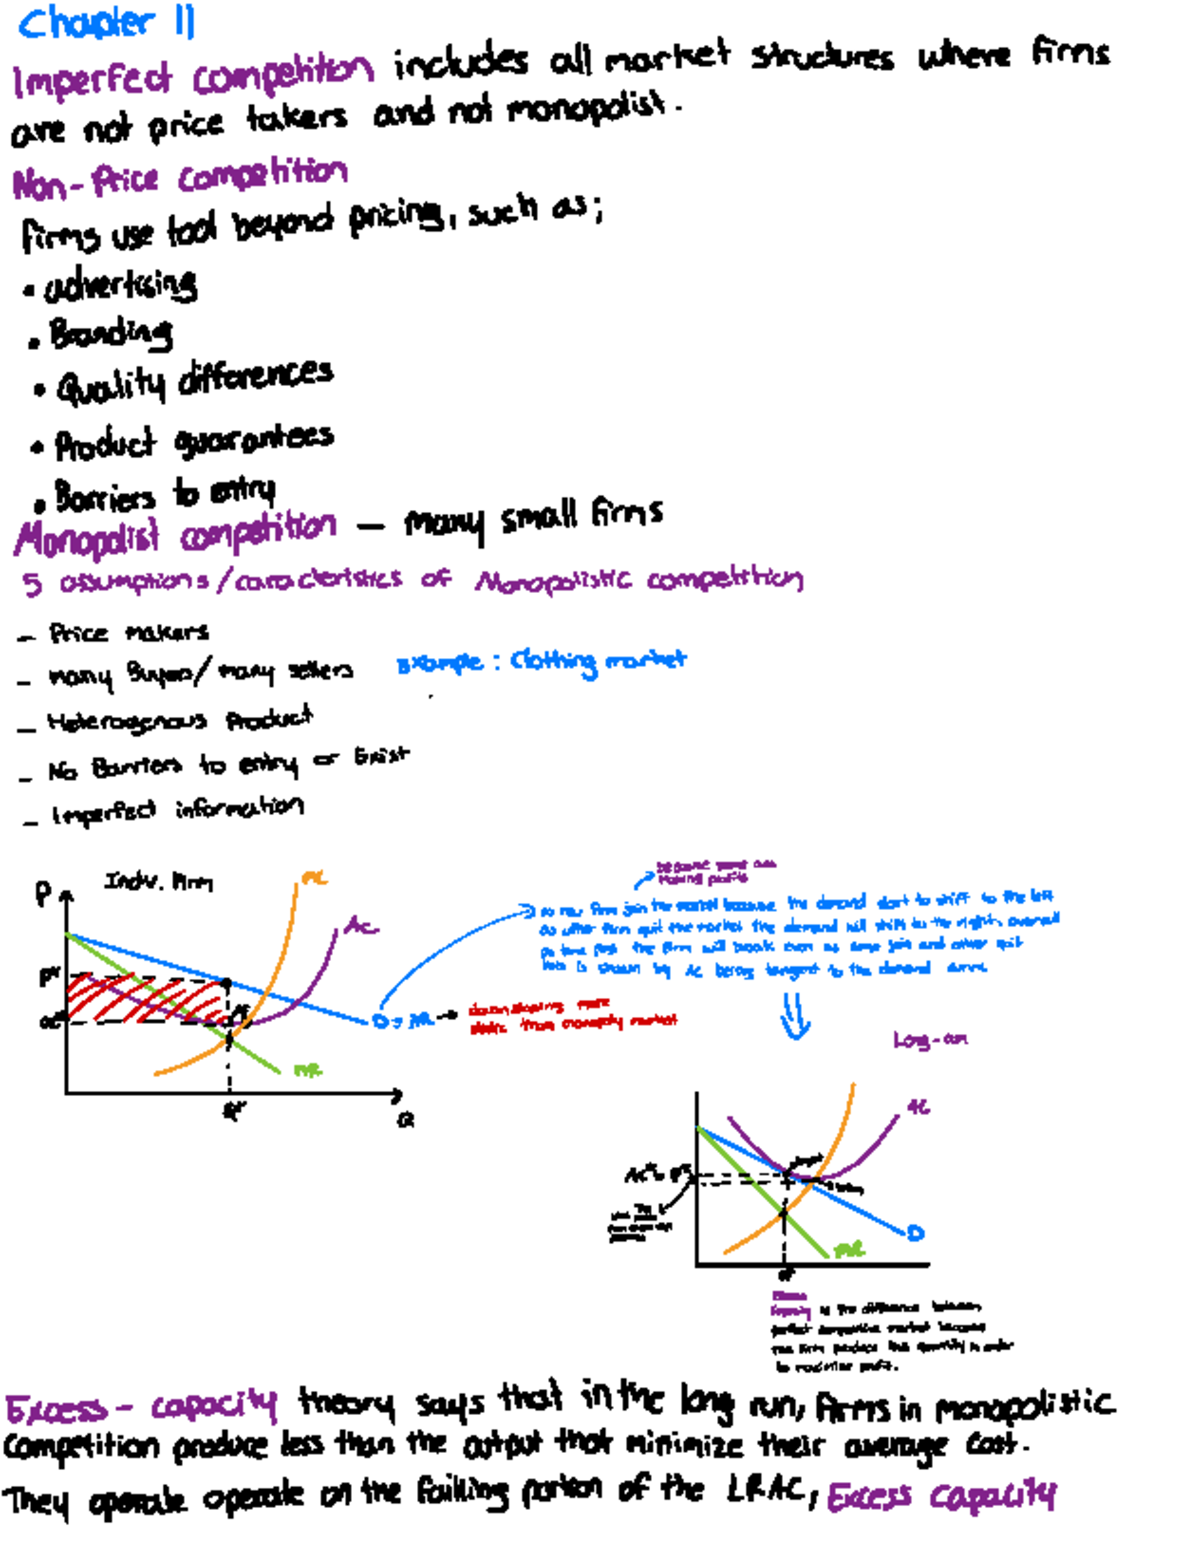 Chapter 11
Imperfect competition includes all market structures where firms
are not price takers and not monopolist.
Non-Price competition
firms use tool beyond pricing, such as;
• advertising
• Branding
• Quality differences
• Product guarantees
• Barriers to entry
Monopolist competition — many small firms
5 assumptions/caracteristics of Monopolistic competition
- Price makers
- many Buyers/many sellers Example : Clothing market
- Heterogenous Product
- No Barriers to entry or Exist
- Imperfect information
P Indv. Firm
MC
AC
P*
AC*
D = AR
MR
Q*
Q
because some are
making profits
as new firm join the market because the demand start to shift to the left
as other firm quit the market the demand will shift to the right, overall
the firm will break even as some join and other quit
this is shown by AC being tangent to the demand curve
downsloping more
elastic than monopoly market
Long-run
AC
AC*= P*
D
MR
Q*
Excess
Capacity is the difference between
perfect competitive market because
the firm produce less quantity in order
to maximize profit.
Excess - capacity theory says that in the long run, firms in monopolistic
Competition produce less than the output that minimize their average cost.
They operate operate on the failling portion of the LRAC, Excess capacity